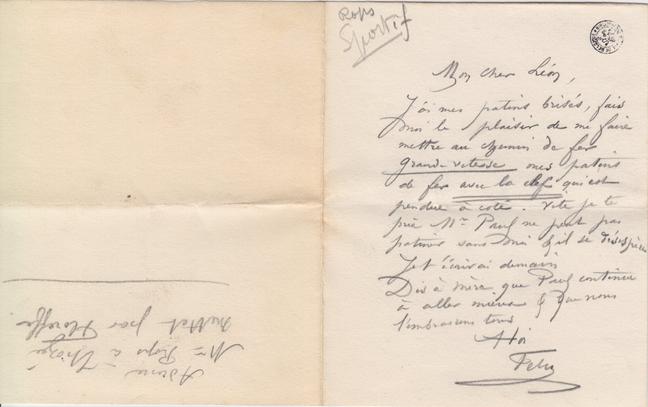 Rops
Sportif
Mon cher Léon,
J'ai mes patins brisés, fais
moi le plaisir de me faire
mettre au chemin de fer
grande vitesse mes patins
de fer avec la clef qui est
pendue à coté. Vite je te
prie Mr Paul ne peut pas
patiner sans moi & il se désespère
Je t'écrirai demain
Dis à mère que Paul continue
à aller mieux & que nous
l'embrassons tous
A toi
Félix
Mme Rops à Thozée
Mettet par Floreffe